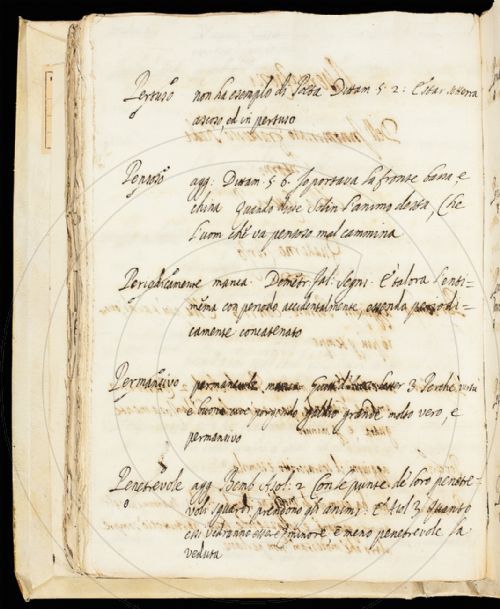 Pertuso non ha esempio di Poeta Dittam. 5. 2: E star sotterra
ascoso, ed in pertuso
Pensoso agg: Dittam. 5. 6. Io portava la fronte bassa, e
china Quando disse Solin l'animo desta, Che
l'uom che va pensoso mal cammina
Periodicamente manca. Demetr. Fal: Segni. E talora senti=
con periodo accidentalmente, essendo periodi=
camente concatenato
Permansivo permanevole manca letter 3. Perchè
è buona grande molto vero, e
permansivo
Penetrevole agg. Bemb. Asol: 2 Con le punte de' loro penetre=
voli sguardi prendono gli animi. E Asol 3. quanto
essi è minore e meno penetrevole la
veduta